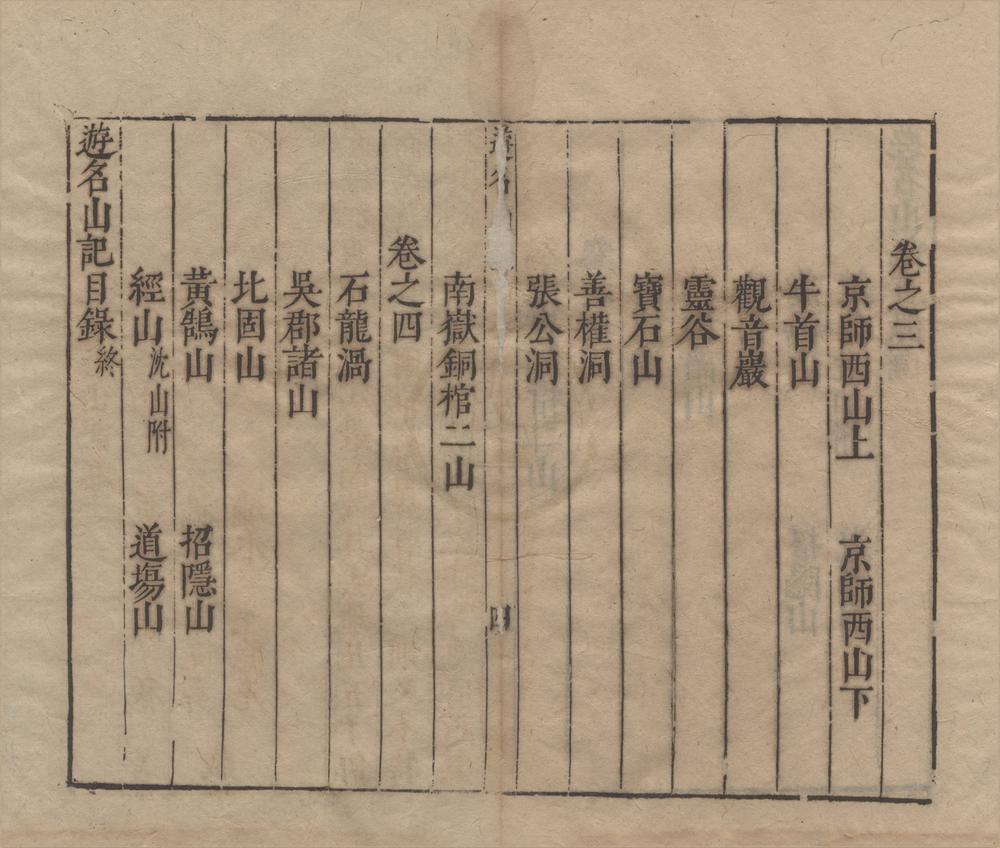 卷之三
京師西山上 京師西山下
牛首山
觀音巖
靈谷
寶石山
善權洞
張公洞
遊名
四
南嶽銅棺二山
卷之四
石龍渦
吳郡諸山
北固山
黃鵠山 招隱山
經山 沈山附 道塲山
遊名山記目錄終